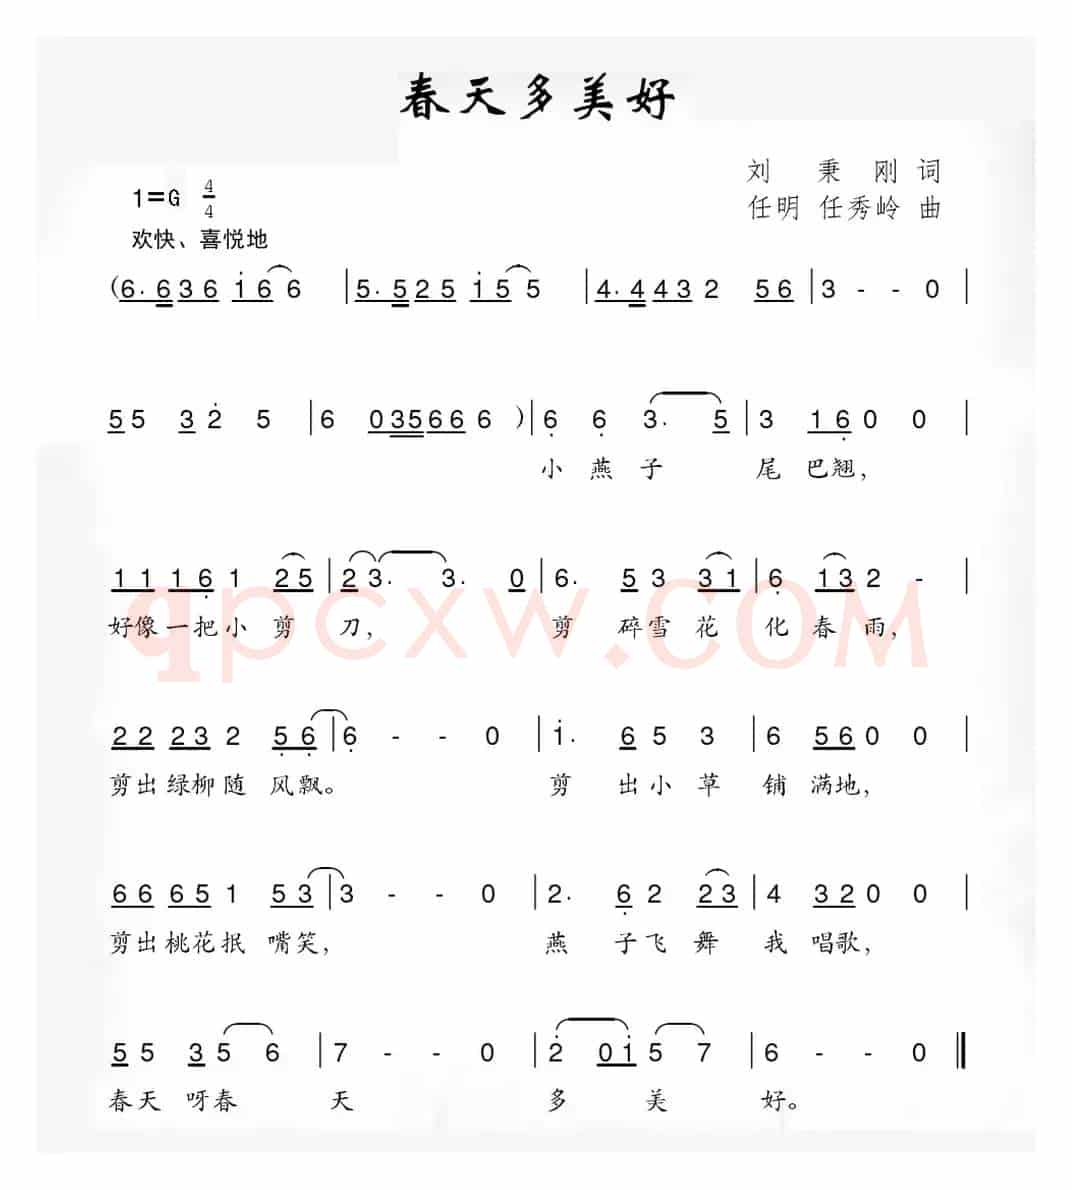 春天多美好
刘 秉 刚 词
1=G 4/4
任明 任秀岭 曲
欢快、喜悦地
(6. 6 3 6 i 6 6 | 5. 5 2 5 i 5 5 | 4. 4 4 3 2 5 6 | 3 - - 0 |
5 5 3 2̇ 5 | 6 0 3 5 6 6 6 ) | 6̣ 6̣ 3. 5 | 3 1 6̣ 0 0 |
小 燕 子 尾 巴翘,
1 1 1 6̣ 1 2 5 | 2 3. 3. 0 | 6. 5 3 3 1 | 6̣ 1 3 2 - |
好像一把小 剪 刀, 剪 碎雪 花 化 春 雨,
qpcxw.com
2 2 2 3 2 5̣ 6̣ | 6̣ - - 0 | i. 6 5 3 | 6 5 6 0 0 |
剪出绿柳随 风飘。 剪 出小 草 铺 满地,
6 6 6 5 1 5 3 | 3 - - 0 | 2. 6̣ 2 2 3 | 4 3 2 0 0 |
剪出桃花抿 嘴笑, 燕 子飞 舞 我 唱歌,
5 5 3 5 6 | 7 - - 0 | 2̇ 0 i 5 7 | 6 - - 0 ‖
春天 呀春 天 多 美 好。